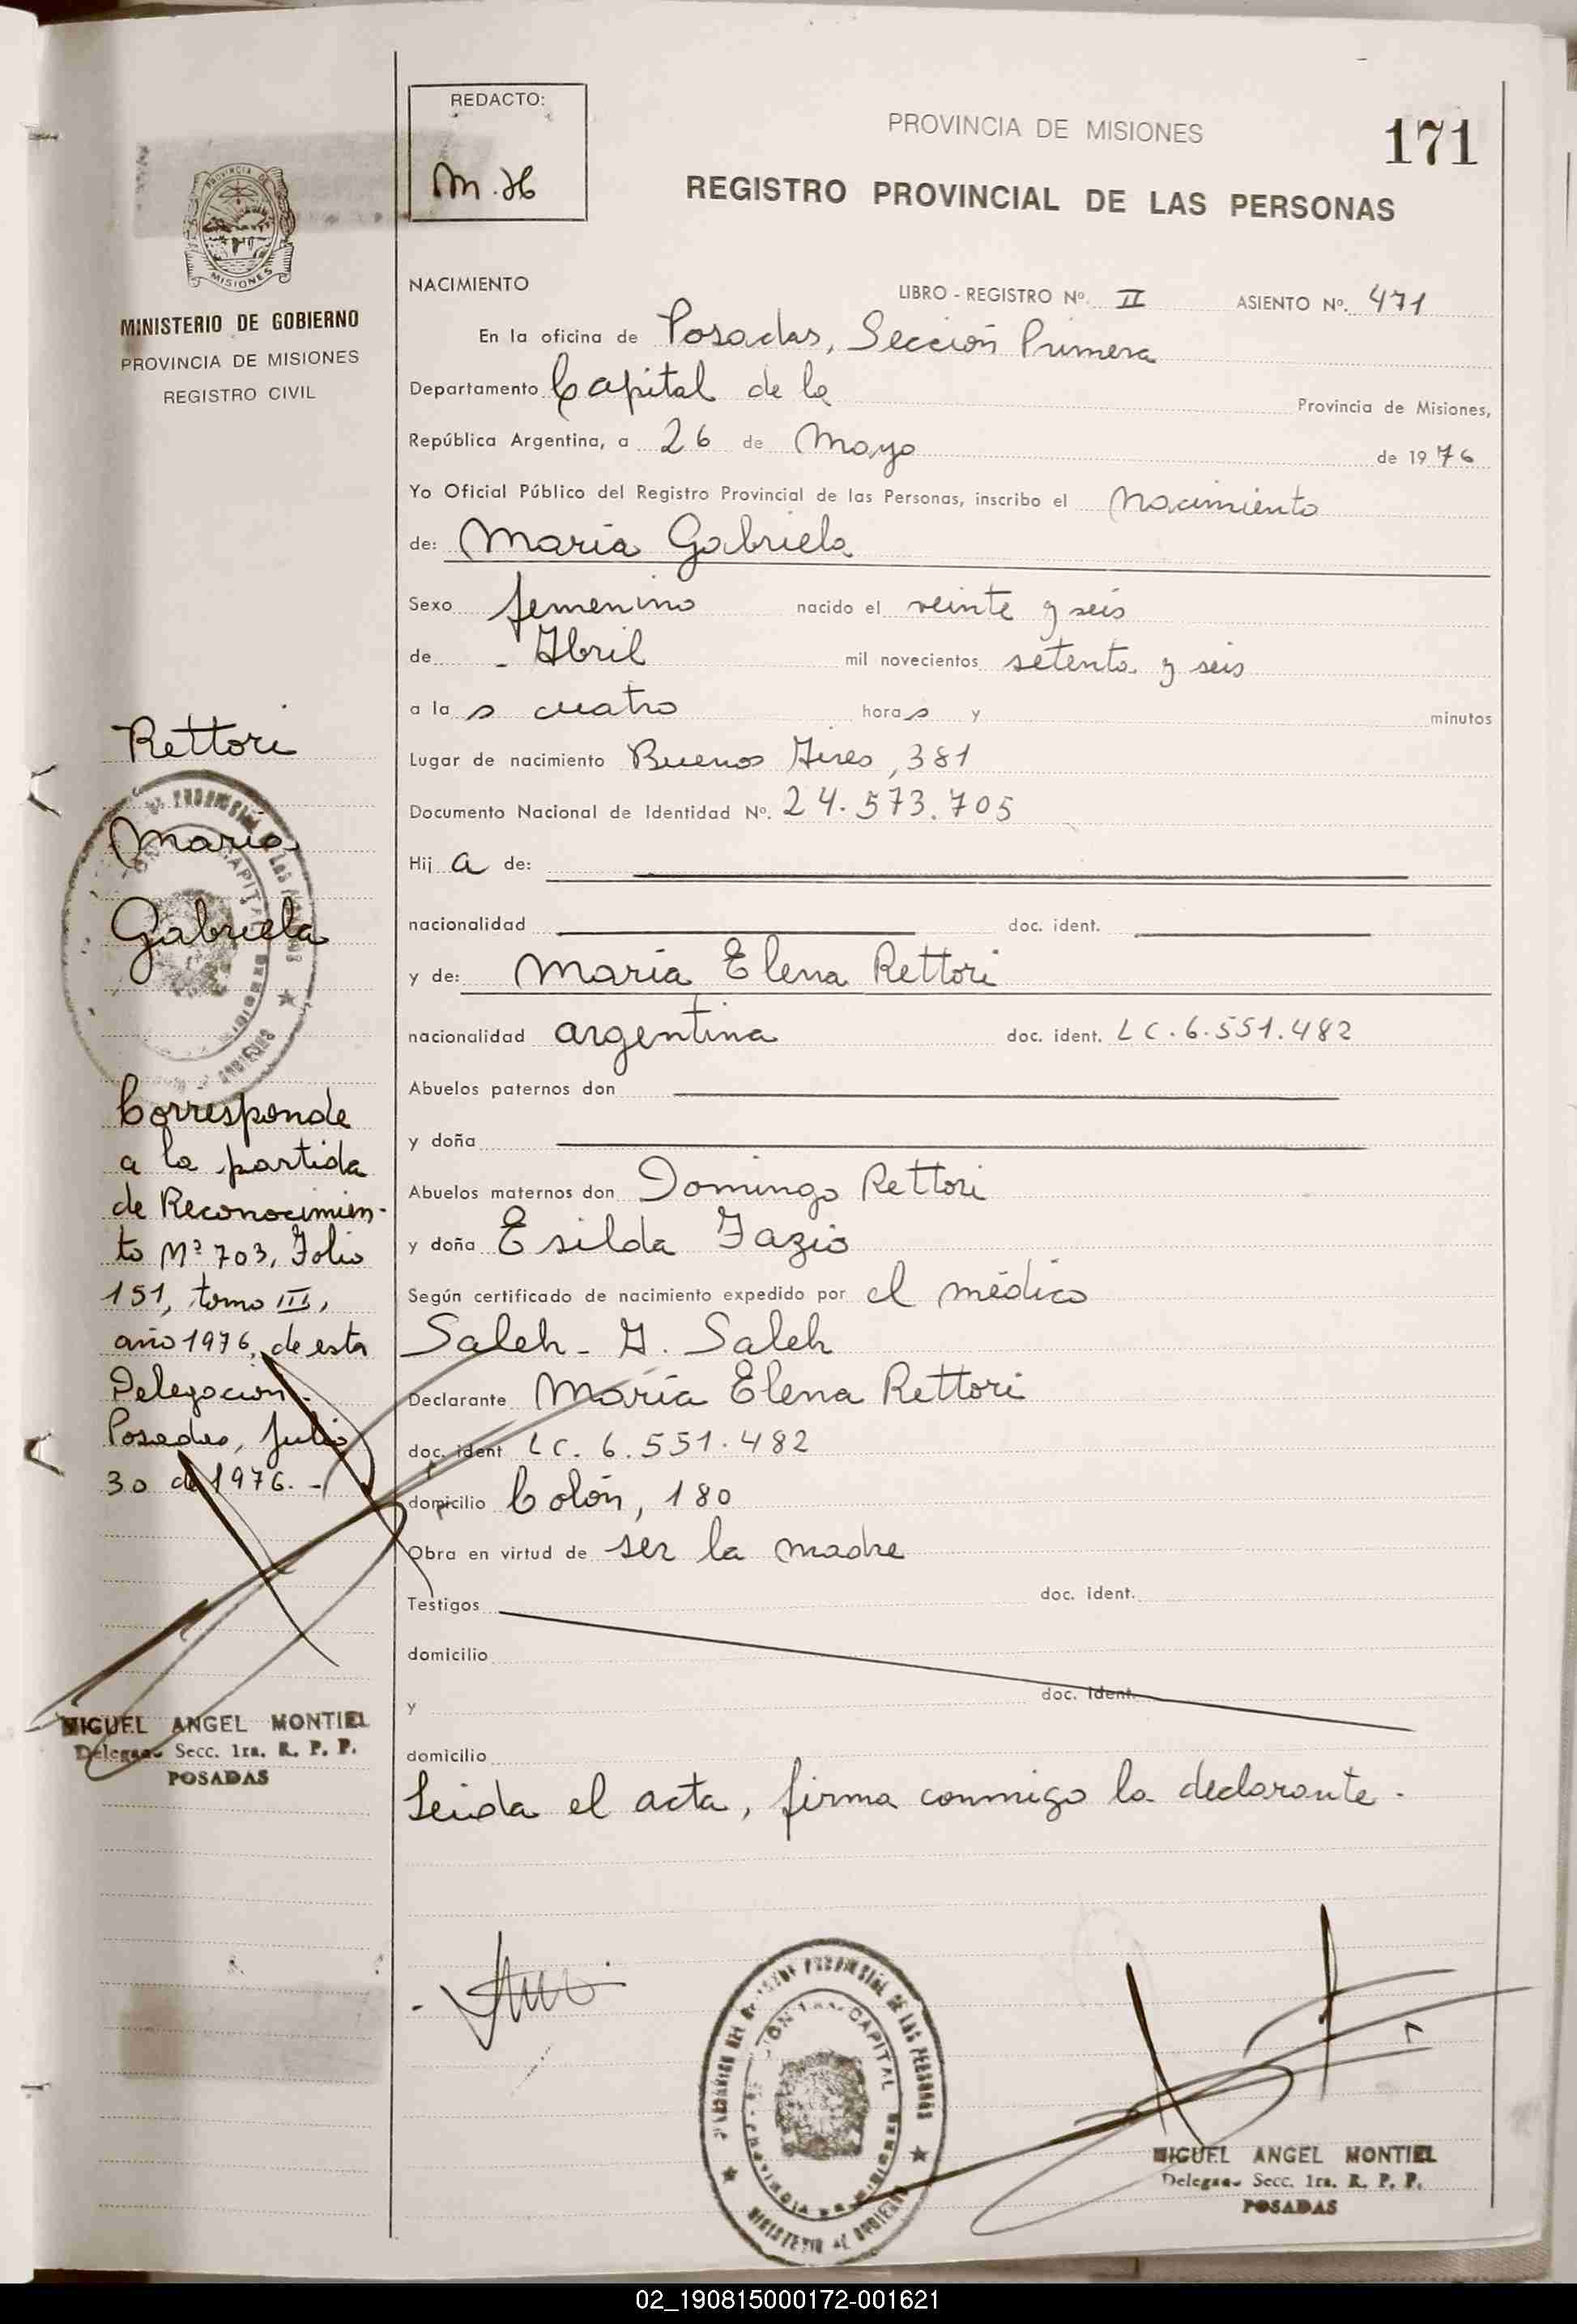 REDACTO:
M. H
PROVINCIA DE MISIONES
171
REGISTRO PROVINCIAL DE LAS PERSONAS
PROVINCIA DE
MISIONES
MINISTERIO DE GOBIERNO
PROVINCIA DE MISIONES
REGISTRO CIVIL
NACIMIENTO
LIBRO - REGISTRO Nº. II ASIENTO Nº. 471
En la oficina de Posadas, Sección Primera
Departamento Capital de la Provincia de Misiones,
República Argentina, a 26 de Mayo de 1976
Yo Oficial Público del Registro Provincial de las Personas, inscribo el Nacimiento
de: María Gabriela
Sexo femenino nacido el veinte y seis
de - Abril mil novecientos setenta y seis
a la s cuatro hora s y minutos
Lugar de nacimiento Buenos Aires, 381
Documento Nacional de Identidad Nº. 24.573.705
Hij a de:
nacionalidad doc. ident.
y de: María Elena Rettori
nacionalidad argentina doc. ident. LC. 6.551.482
Abuelos paternos don
y doña
Abuelos maternos don Domingo Rettori
y doña Esilda Fazio
Según certificado de nacimiento expedido por el médico
Saleh - A. Saleh
Declarante María Elena Rettori
doc. ident LC. 6.551.482
domicilio Colón, 180
Obra en virtud de ser la madre
Testigos doc. ident.
domicilio
y doc. ident.
domicilio
Leida el acta, firma conmigo la declarante.
Rettori
María
Gabriela
Corresponde
a la partida
de Reconocimien-
to Nº 703, Folio
151, tomo III,
año 1976, de esta
Delegacion.
Posadas, Julio
30 de 1976. -
MIGUEL ANGEL MONTIEL
Delegado Secc. 1ra. R. P. P.
POSADAS
PROVINCIAL DE LAS PERSONAS
CAPITAL
MINISTERIO DE GOBIERNO
MIGUEL ANGEL MONTIEL
Delegado Secc. 1ra. R. P. P.
POSADAS
02_190815000172-001621